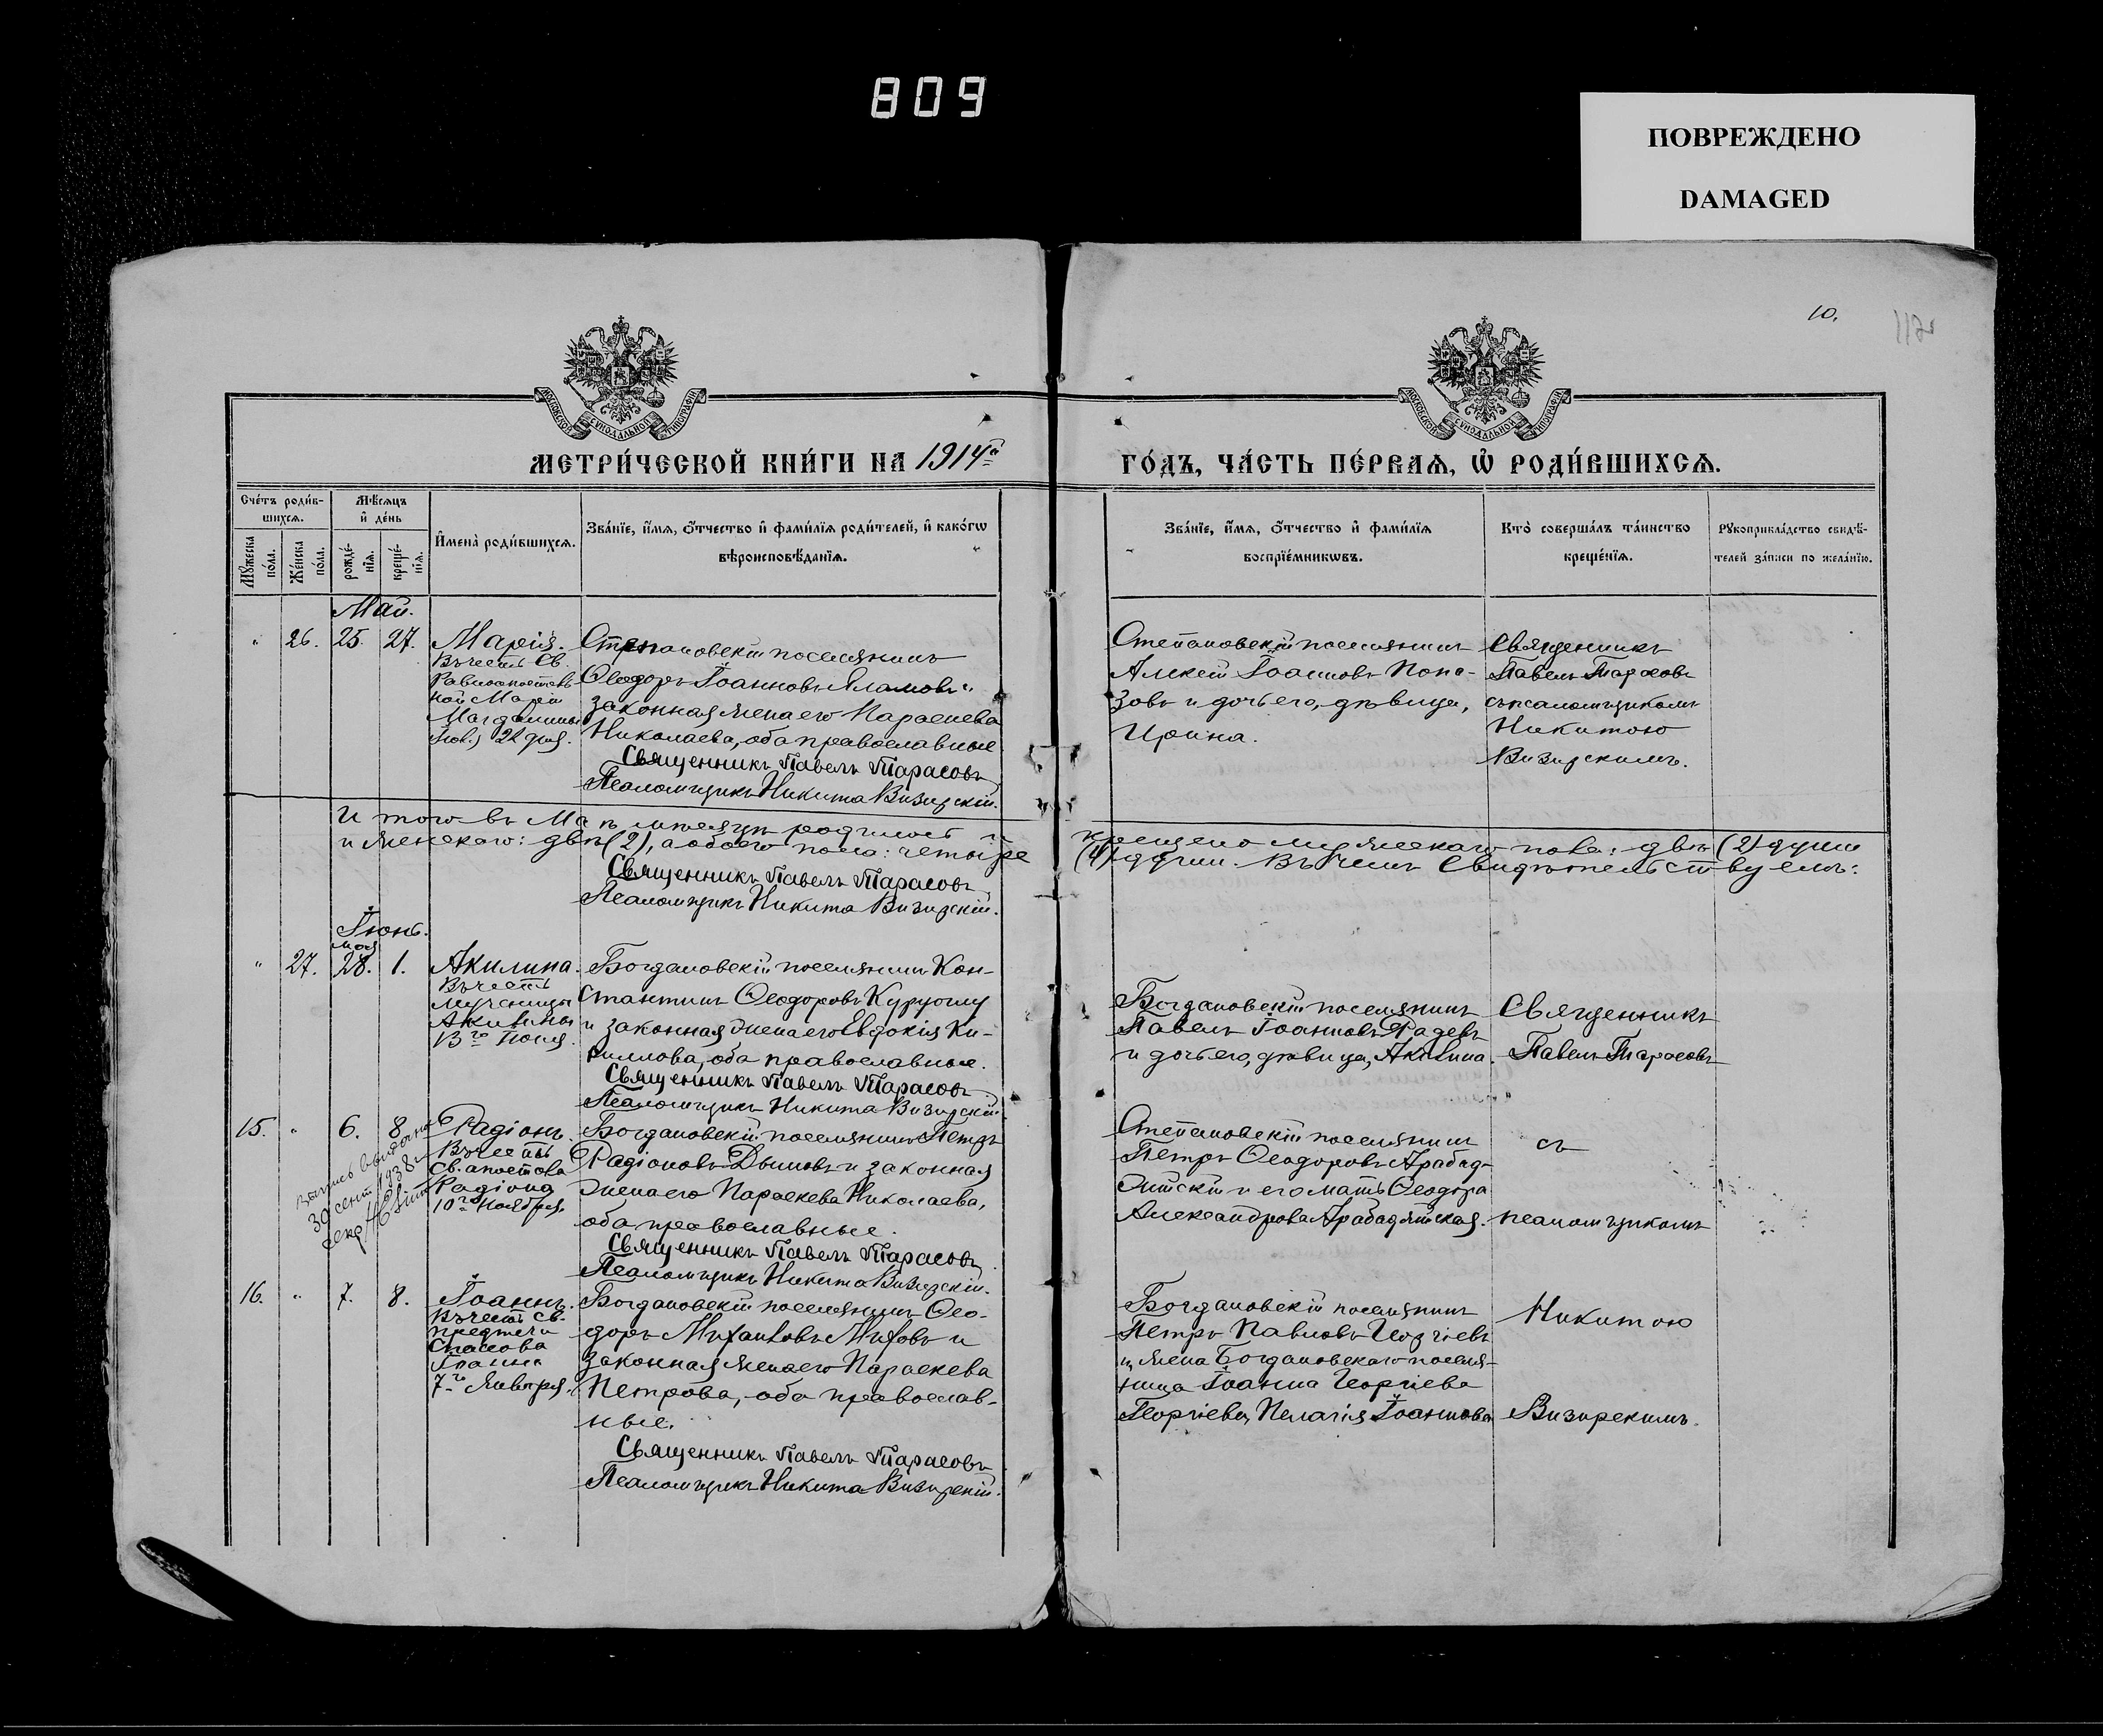 809
ПОВРЕЖДЕНО
DAMAGED
10.
МОСКОВСКОЙ СѴНОДАЛЬНОЙ ТИПОГРАФІИ
МОСКОВСКОЙ СѴНОДАЛЬНОЙ ТИПОГРАФІИ
МЕТРИ́ЧЕСКОЙ КНИ́ГИ НА 1914й
ГО́ДЪ, ЧА́СТЬ ПЕ́РВАѦ, Ѡ҆ РОДИ́ВШИХСѦ.
Сче́тъ роди́в-
шихсѧ.
Мѣ́сѧцъ
и҆ де́нь
Мꙋ́жеска
по́ла.
Же́нска
по́ла.
рожде́-
нїѧ.
креще́-
нїѧ.
И҆мена̀ роди́вшихсѧ.
Зва́нїе, и҆́мѧ, ѻ҆́тчество и҆ фами́лїѧ роди́телей, и҆ како́гѡ
вѣроисповѣ́данїѧ.
Зва́нїе, и҆́мѧ, ѻ҆́тчество и҆ фами́лїѧ
воспрїе́мникѡвъ.
Кто̀ соверша́лъ та́инство
креще́нїѧ.
Рꙋкоприкла́дство свидѣ́-
телей за́писи по жела́нїю.
Май.
" 26. 25. 27. Марія.
Въ честь Св.
Равноапостоль-
ной Маріи
Магдалины
22 дня.
Степановскій поселянинъ
Ѳеодоръ Іоанновъ и
законная жена его Параскева
Николаева, оба православные
Священникъ Павелъ Тарасовъ
Псаломщикъ Никита Визирскій.
Степановскій поселянинъ
Алексій Іоанновъ Попа-
зовъ и дочь его, дѣвица,
Ирина.
Священникъ
Павелъ Тарасовъ
съ псаломщикомъ
Никитою
Визирскимъ.
И того въ Маѣ мѣсяцѣ родилось и крещено мужескаго пола: двѣ (2) души
и женскаго: двѣ (2), а обоего пола: четыре (4) души. Въ чемъ свидѣтельствуемъ:
Священникъ Павелъ Тарасовъ
Псаломщикъ Никита Визирскій.
Іюнь.
мая
" 27. 28. 1. Акилина.
Въ честь
мученицы
Акилины
13го Іюня.
Богдановскій поселянинъ Кон-
стантинъ Ѳеодоровъ Куруоглу
и законная жена его Евдокія Ки-
риллова, оба православные.
Священникъ Павелъ Тарасовъ
Псаломщикъ Никита Визирскій
Богдановскій поселянинъ
Павелъ Іоанновъ Радевъ
и дочь его, дѣвица, Акилина.
Священникъ
Павелъ Тарасовъ
15. " 6. 8. Радіонъ.
Въ честь
Св. апостола
Радіона
10го Ноября.
30 сент 1938 г
Богдановскій поселянинъ Петръ
Радіоновъ Дымовъ и законная
жена его Параскева Николаева,
оба православные.
Священникъ Павелъ Тарасовъ
Псаломщикъ Никита Визирскій.
Степановскій поселянинъ
Петръ Ѳеодоровъ Арабад-
жійскій и его мать Ѳеодора
Александрова Арабаджійская.
съ
псаломщикомъ
16. " 7. 8. Іоаннъ.
Въ честь Св.
предтечи
Спасова
Іоанна
7го Января.
Богдановскій поселянинъ Ѳео-
доръ Михаиловъ Мифовъ и
законная жена его Параскева
Петрова, оба православ-
ные.
Священникъ Павелъ Тарасовъ
Псаломщикъ Никита Визирскій.
Богдановскій поселянинъ
Петръ Павловъ Георгіевъ
и жена Богдановскаго поселя-
нина Іоанна Георгіева
Георгіева, Пелагія Іоаннова
Никитою
Визирскимъ.